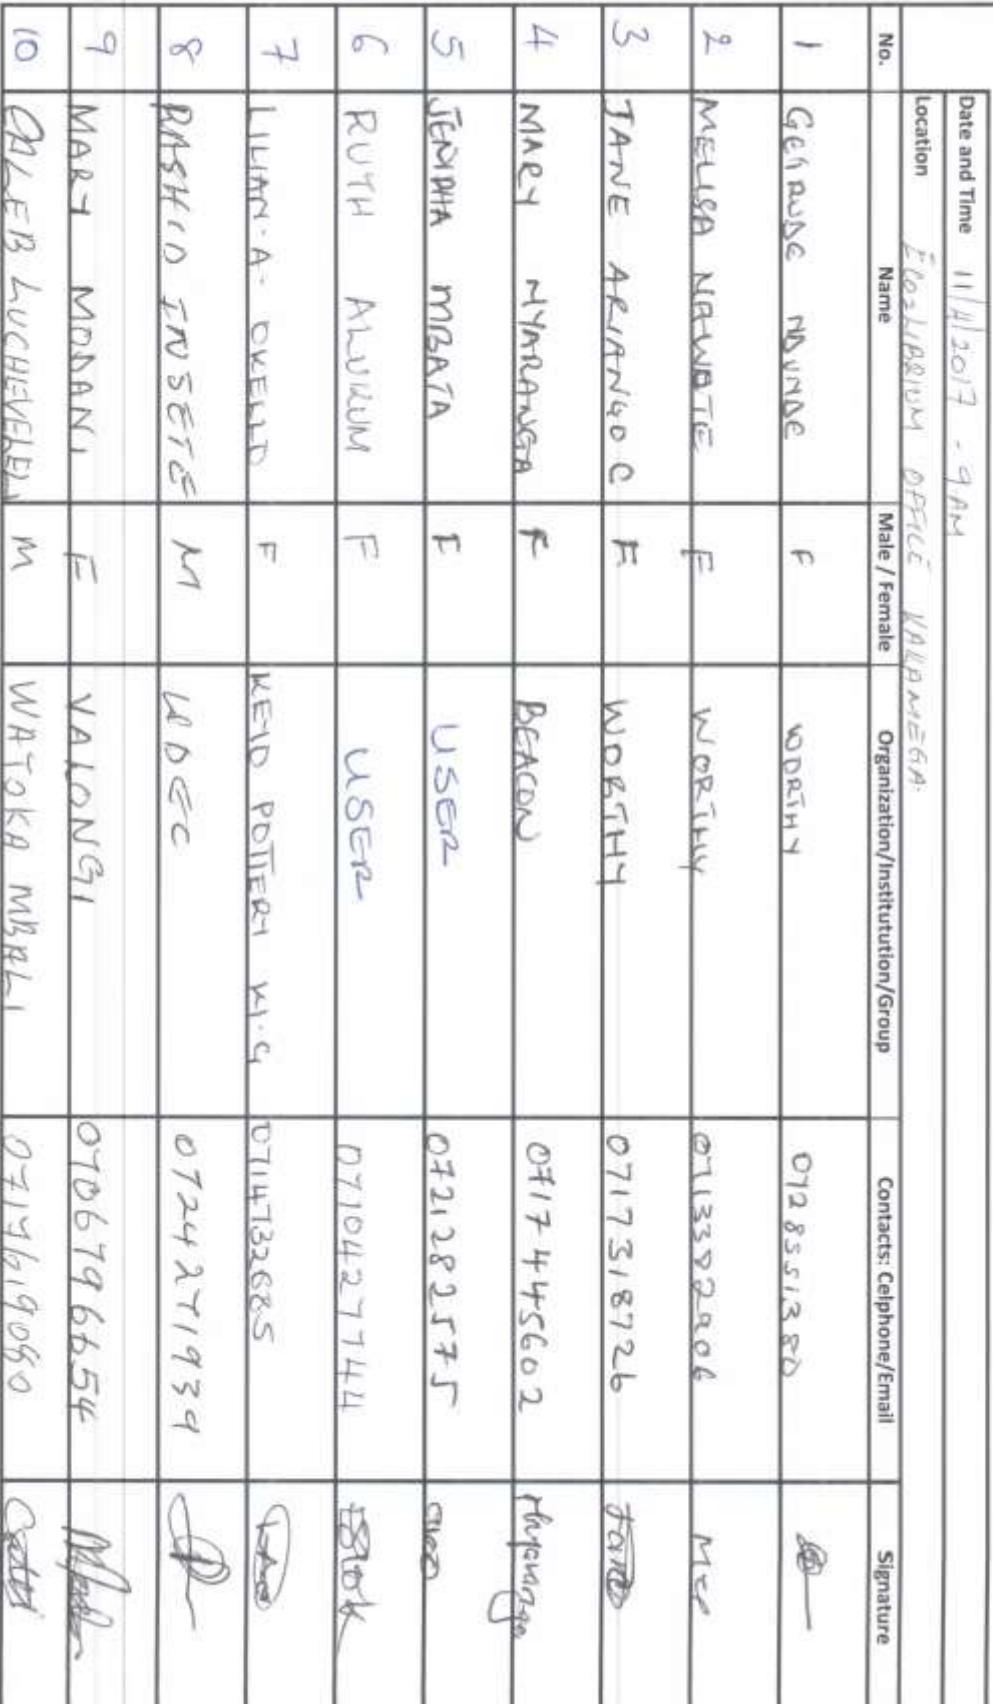 Date and Time 11/4/2017 - 9 AM
Location ECO2LIBRIUM OFFICE KAKAMEGA.
No. Name Male / Female Organization/Institutution/Group Contacts: Celphone/Email Signature
1 GETRUDE F WORTHY 0728551380
2 MELISA F WORTHY
3 JANE ARIANGO C F WORTHY 0717318726 Jane
4 MARY NYARANGA F BEACON 0717445602 Nyaranga
5 JENIPHA MBATA F USER 0721282575
6 RUTH F USER 0710427744
7 LILIAN. A. OKELLO F POTTERY
8 RASHID INSETE M 0724271939
9 MARY MODANI F VALONGI 0706796654
10 CALEB M WATOKA MBALI